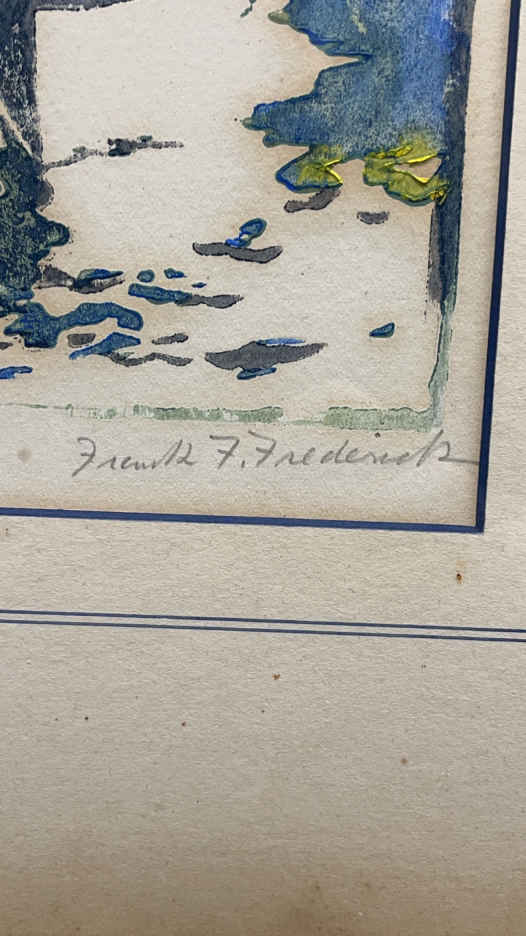 Frank F. Frederick